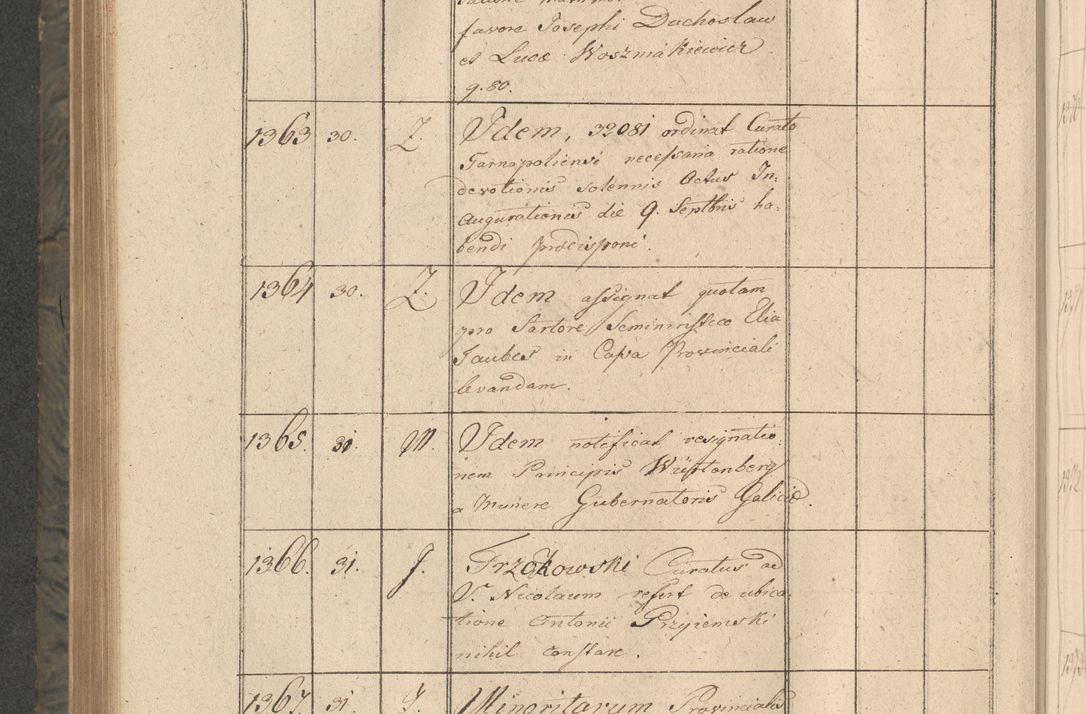 favore Josephi Duchoslaw
et Lucæ Woszmakiewicz
g. 80.
1363 30. Z. Idem, 32081 ordinat Curato
Tarnopoliensi necessaria ratione
devotionis solennis Actus In:
augurationis die 9. Septbris ha:
bendi prædisponi.
1364 30. Z. Idem assignat quotam
pro Sartore Seminaristico Elia
Taubes in Cassa Provinciali
levandam.
1365. 31. W. Idem notificat resignatio:
nem Principis Würtenberg
a Munere Gubernatoris Galiciæ.
1366. 31. J. Trzaskowski Curatus ad
S. Nicolaum refert de ubica:
tione Antonii Przyiemski
nihil constare.
1367. 31. J. Minoritarum Provincialis